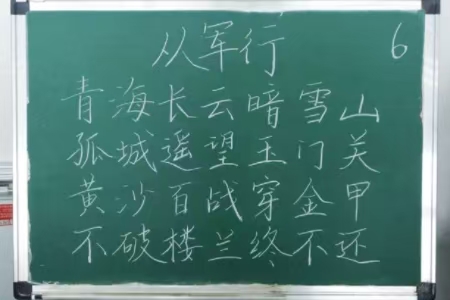 从军行 6
青海长云暗雪山
孤城遥望王门关
黄沙百战穿金甲
不破楼兰终不还